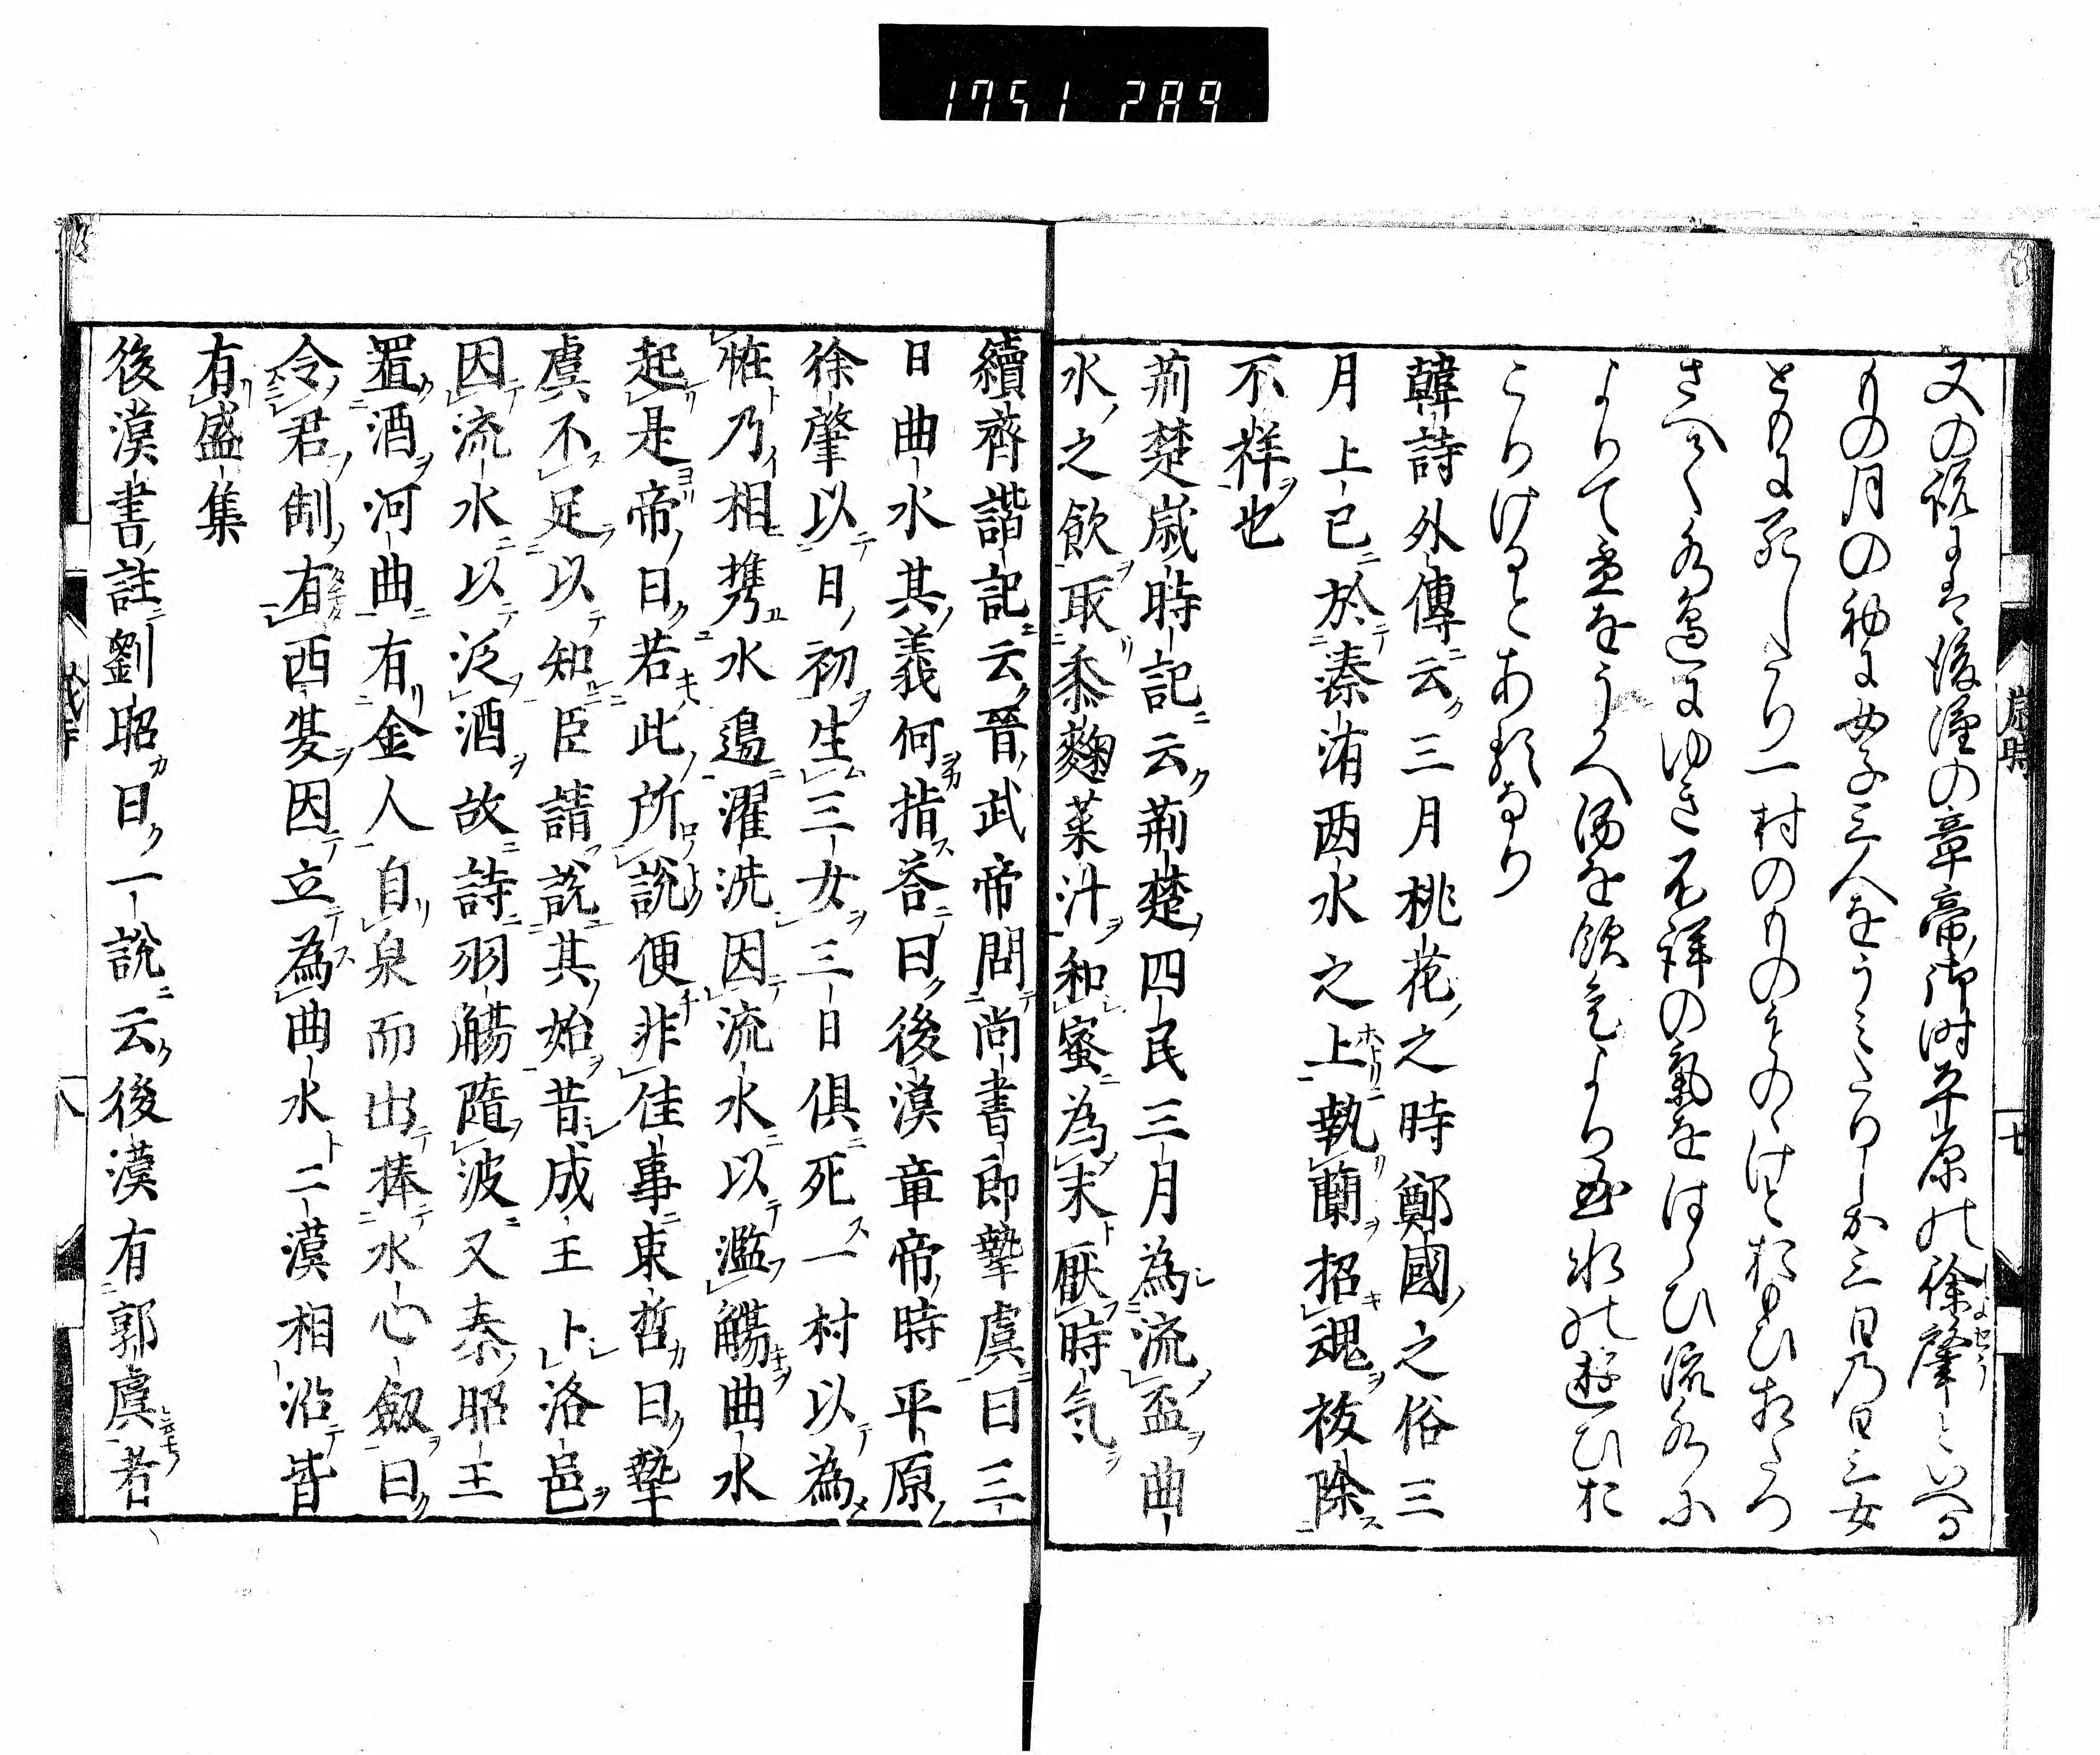 1751 289
又の説には後漢の章帝御時平原の徐肇といへる
ものの月の初に女子三人をうみたりしか三日乃日三女
ともに死したり一村のものそのけとおもひ相たつ
さへて水邉にゆき不祥の氣をはらひ流水に
よりて盃をうかへ酒を飲それより曲水の遊ひお
こりけるとあるなり
韓詩外傳云三月桃花之時鄭國之俗三
月上巳於溱洧两水之上執蘭招魂祓除
不祥也
荊楚歳時記云荊楚四民三月為流盃曲
水之飲取黍麹菜汁和蜜為末厭時气
續齊諧記云晉武帝問尚書郎摯虞曰三
日曲水其義何指荅曰後漢章帝時平原
徐肇以日初生三女三日俱死一村以為
恠乃相携水邉濯洗因流水以濫觴曲水
起是帝曰若此所說便非佳事束晢曰摯
虞不足以知臣請說其始昔成王卜洛邑
因流水以泛酒故詩羽觴隨波又秦昭王
置酒河曲有金人自泉而出捧水心劔曰
令君制有西夏因立為曲水二漢相沿皆
有盛集
後漢書註劉昭曰一說云後漢有郭虞者